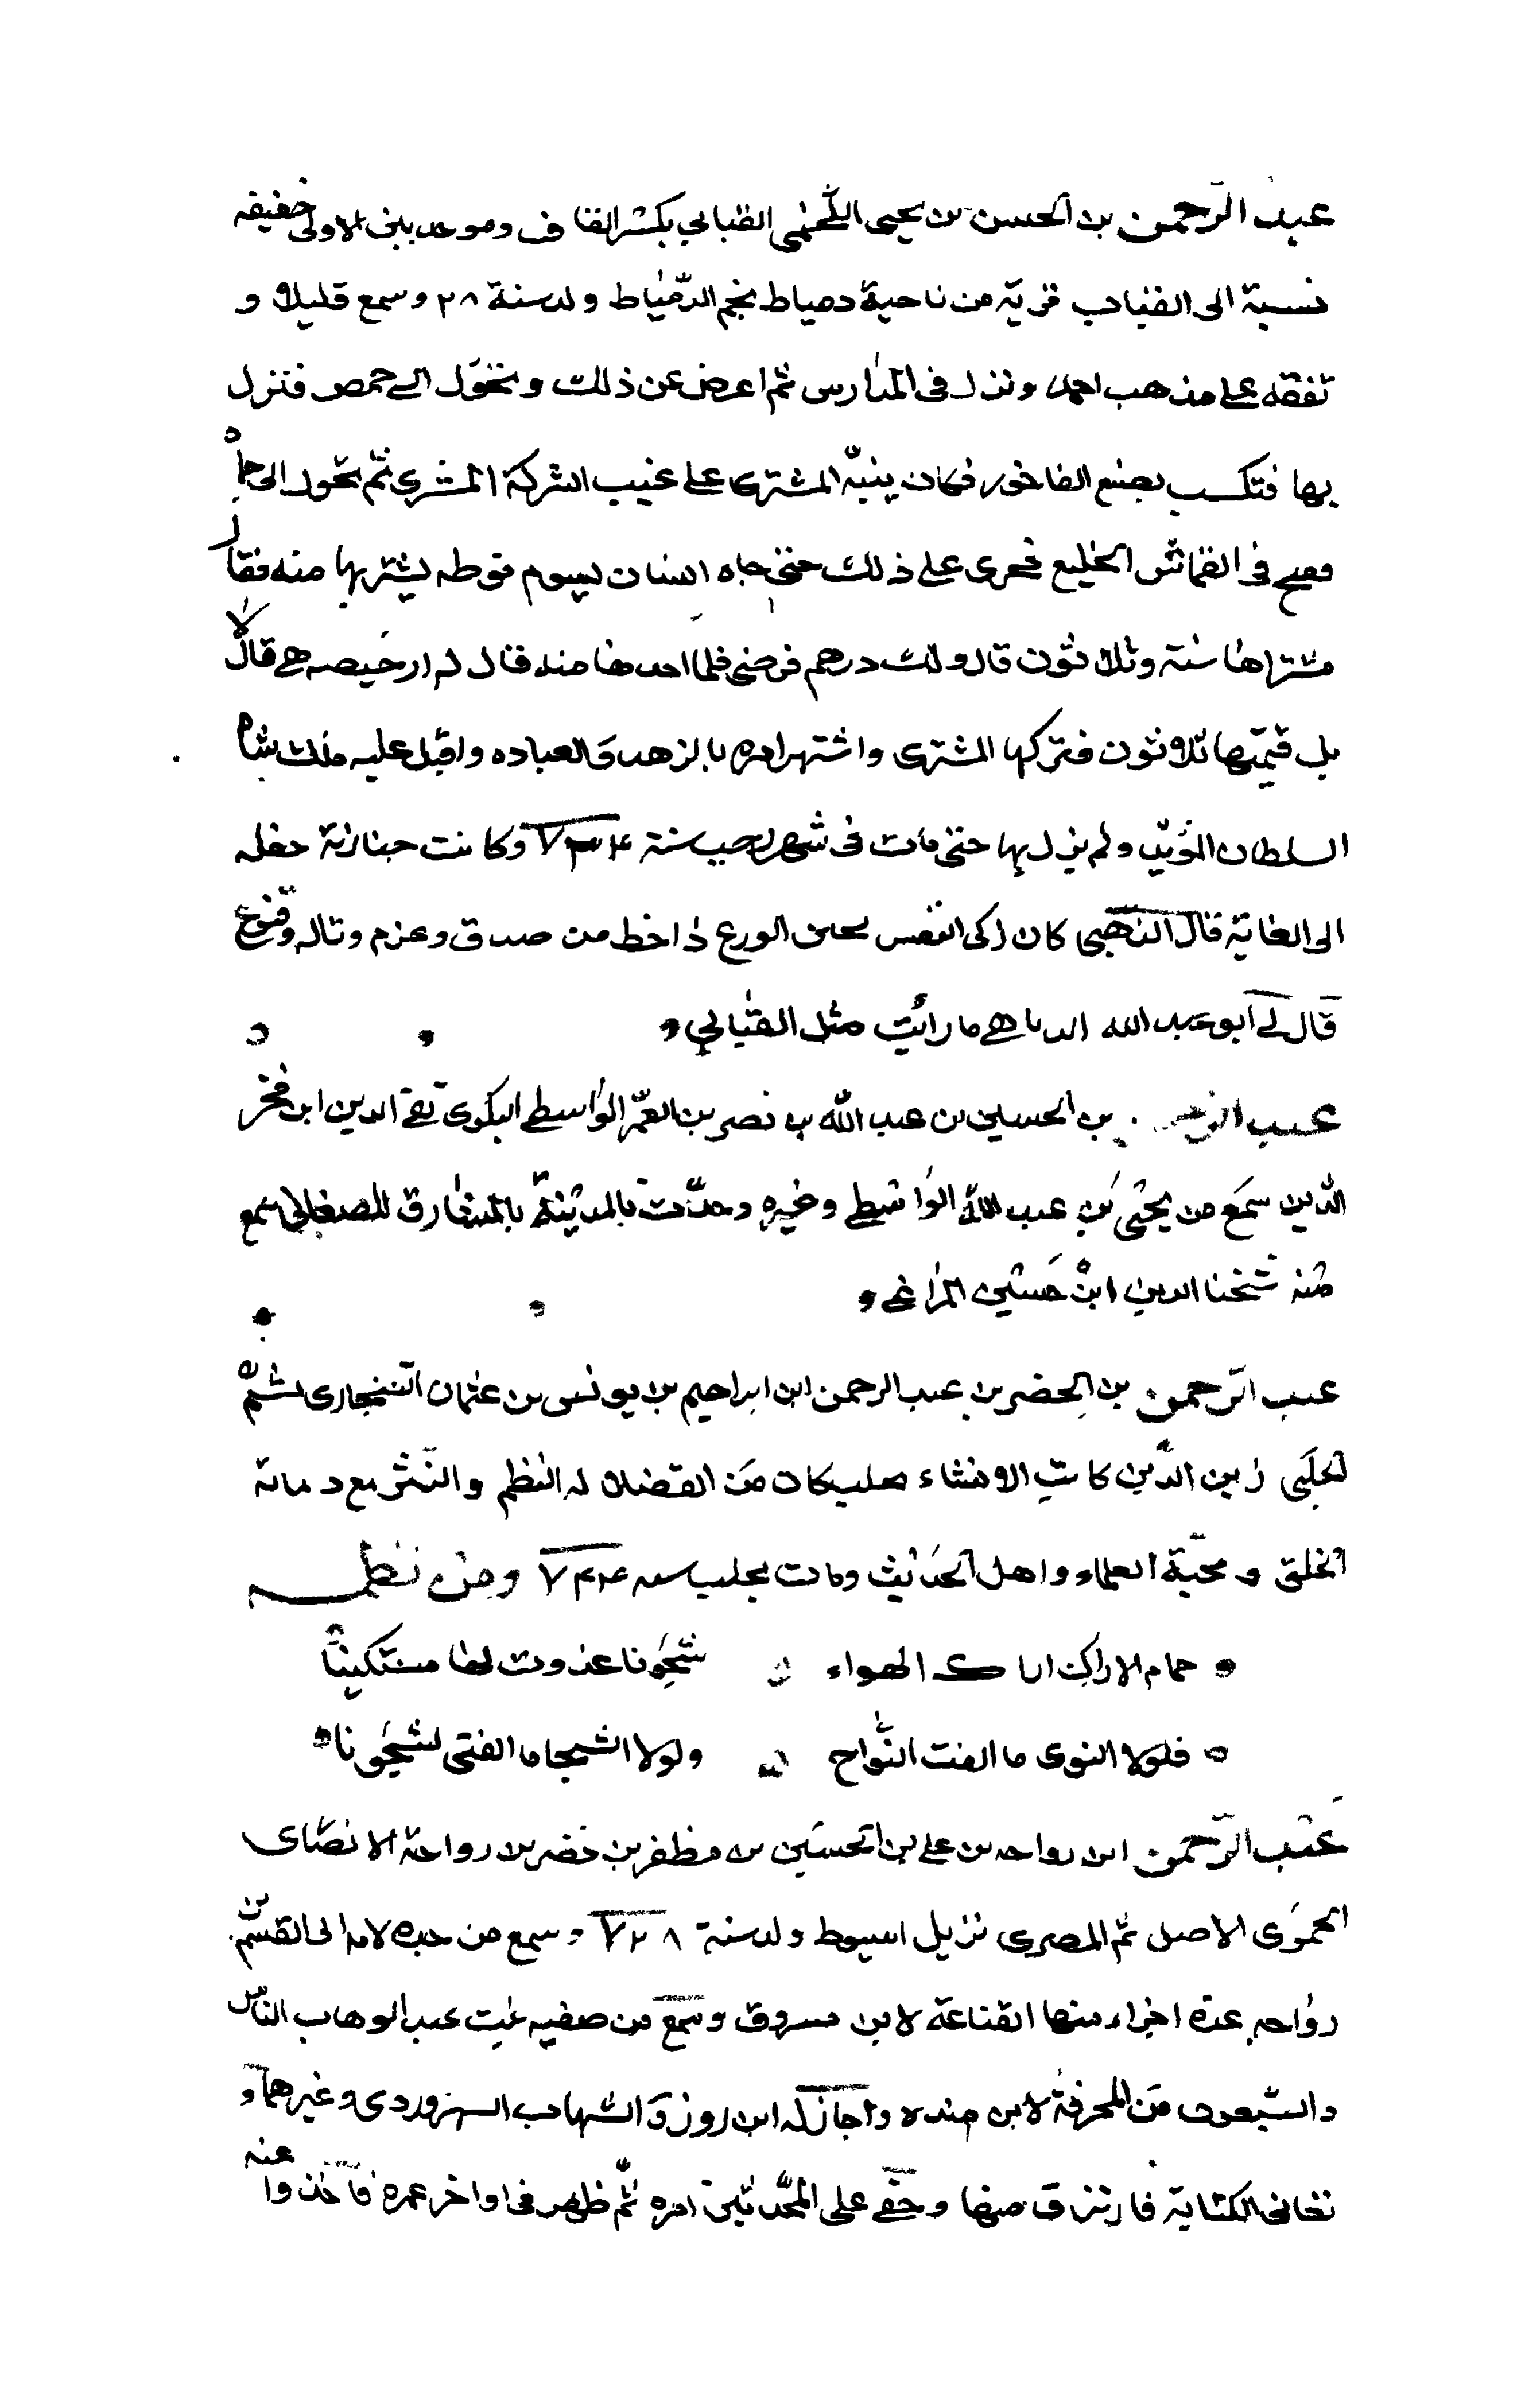 عبد الرحمن بن الحسن بن يحيى اللخمى القبابي بكسر القاف وموحدتين الاولى خفيفه
نسبة الى القباب قرية من ناحية دمياط نجم الدمياط ولد سنة ٢٨ وسمع قليلا و
تفقه على مذهب احمد ونزل فى المدارس ثم اعرض عن ذلك وتحول الى حمص فنزل
بها فتكسب بصنع الفاخور فكان ينبه المشترى على عيب الشركة المشرى ثم تحول الى حماه
فى القماش الخليع فجرى على ذلك حتى جاه انسان ليسوم فوطه يشتريها منه فقال
مشتراها ستة وثلاثون قال ولك درهم فرضى فلما احدها منه قال له ارخيصه هى قال لا
بل قيمتها ثلاثون فتركها المشترى واشتهر امره بالزهد والعباده واقبل عليه ملك بشاه
السلطان المؤيد ولم يزل بها حتى مات فى شهر رجب سنة ٧٣٤ وكانت جنازتة حفله
الى الغاية قال الذهبى كان زكى النفس الورع ذا خط من صدق وعزم وتاله وقنوع
قال لى ابو عبد الله الدباهى ما رايت مثل القبابي
عبد الرحمن بن الحسين بن عبد الله بن نصر بن المعمر الواسطى البكرى تقى الدين ابن فخر
الدين سمع من يحيى بن عبد الله الواسطى وغيره وحدث بالمدينة بالمشارق للصغانى سمع
منه شيخنا الدين ابن حسين المراغى
عبد الرحمن بن الخضر بن عبد الرحمن ابن ابراهيم بن يونس بن عثمان السنجارى ثم
الحلبى زين الدين كاتب الانشاء بحلب كان من الفضلا له النظم والنثر مع دماثة
الخلق ومحبة العلماء واهل الحديث ومات بحلب سنه ٧٤٤ ومن نظمه
حمام الاراك الهواء شجونا عدوت لها مستكينا
فلولا النوى ما الفت النواح ولولا الشجا ما الفتى لشجونا
عبد الرحمن ابن رواحه بن على بن الحسين بن مظفر بن نضر بن رواحة الانصارى
الحموى الاصل ثم المصرى نزيل اسيوط ولد سنة ٦٢٨ وسمع من جده لامه ابى القسم بن
رواحه عدة اجزاء منها القناعة لابن مسروق وسمع من صفيه بنت عبد الوهاب الناس
من المعرفة لابن منده واجاز له ابن روز والشهاب السهروردى وغيرهما و
تعانى الكتابة فارتزق منها وخفى على المحدثين امره ثم ظهر فى اواخر عمره فاخذوا عنه